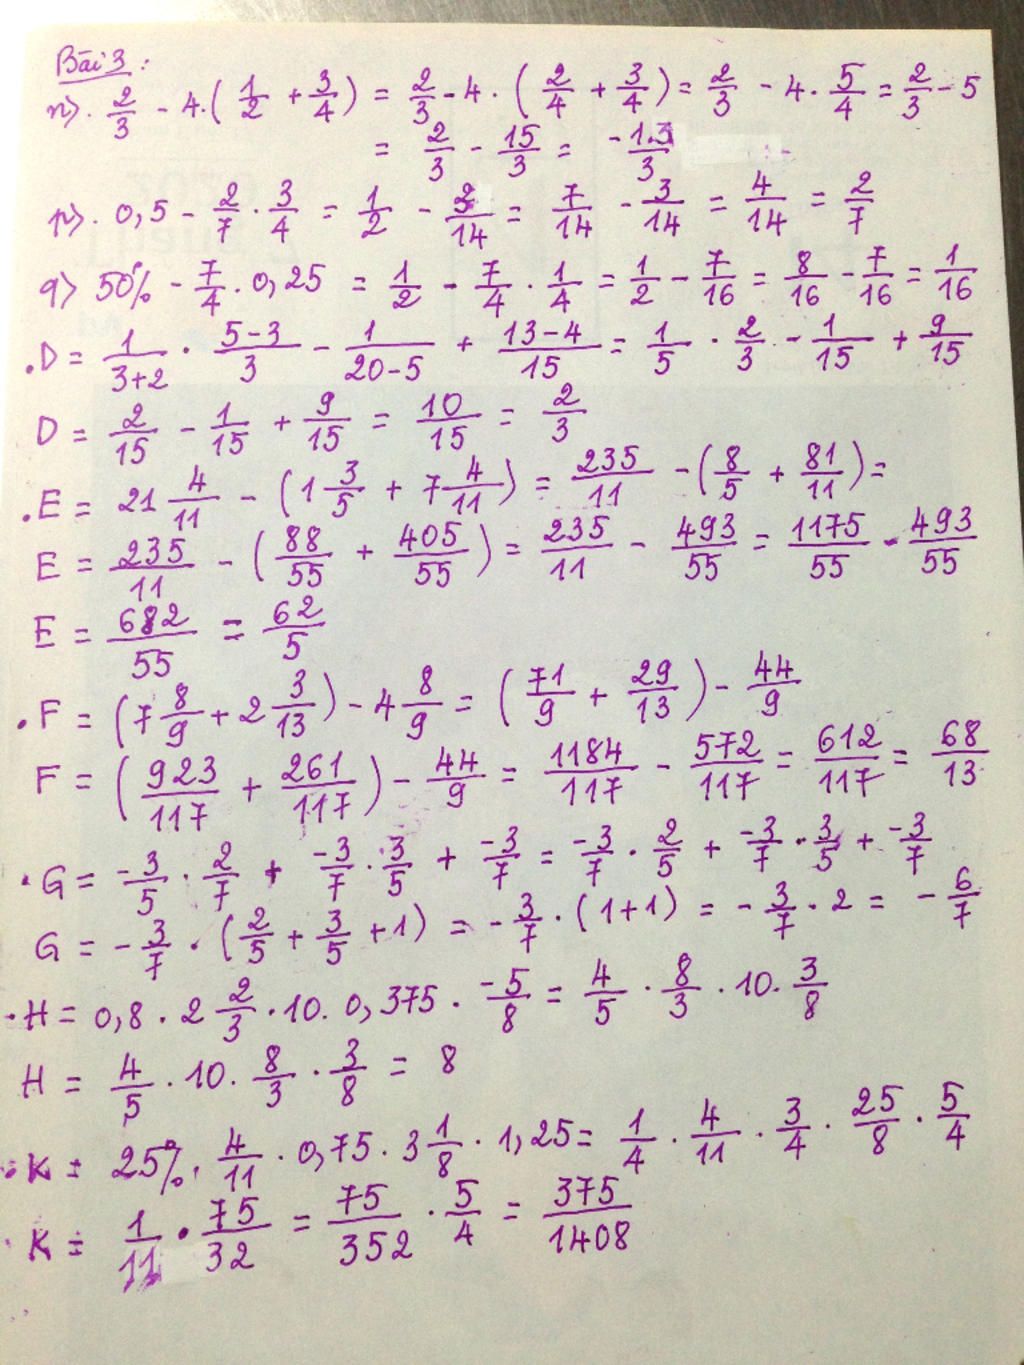 Bài 3:
n). 2/3 - 4.(1/2 + 3/4) = 2/3 - 4.(2/4 + 3/4) = 2/3 - 4.5/4 = 2/3 - 5
= 2/3 - 15/3 = -13/3
p). 0,5 - 2/7 . 3/4 = 1/2 - 3/14 = 7/14 - 3/14 = 4/14 = 2/7
q) 50% - 7/4 . 0,25 = 1/2 - 7/4 . 1/4 = 1/2 - 7/16 = 8/16 - 7/16 = 1/16
.D = 1/(3+2) . (5-3)/3 - 1/(20-5) + (13-4)/15 = 1/5 . 2/3 - 1/15 + 9/15
D = 2/15 - 1/15 + 9/15 = 10/15 = 2/3
.E = 21 4/11 - (1 3/5 + 7 4/11) = 235/11 - (8/5 + 81/11) =
E = 235/11 - (88/55 + 405/55) = 235/11 - 493/55 = 1175/55 - 493/55
E = 682/55 = 62/5
.F = (7 8/9 + 2 3/13) - 4 8/9 = (71/9 + 29/13) - 44/9
F = (923/117 + 261/117) - 44/9 = 1184/117 - 572/117 = 612/117 = 68/13
.G = -3/5 . 2/7 + -3/7 . 3/5 + -3/7 = -3/7 . 2/5 + -3/7 . 3/5 + -3/7
G = -3/7 . (2/5 + 3/5 + 1) = -3/7 . (1+1) = -3/7 . 2 = -6/7
.H = 0,8 . 2 2/3 . 10. 0,375 . -5/8 = 4/5 . 8/3 . 10. 3/8
H = 4/5 . 10. 8/3 . 3/8 = 8
.K = 25%. 4/11 . 0,75 . 3 1/8 . 1,25 = 1/4 . 4/11 . 3/4 . 25/8 . 5/4
.K = 1/11 . 75/32 = 75/352 . 5/4 = 375/1408